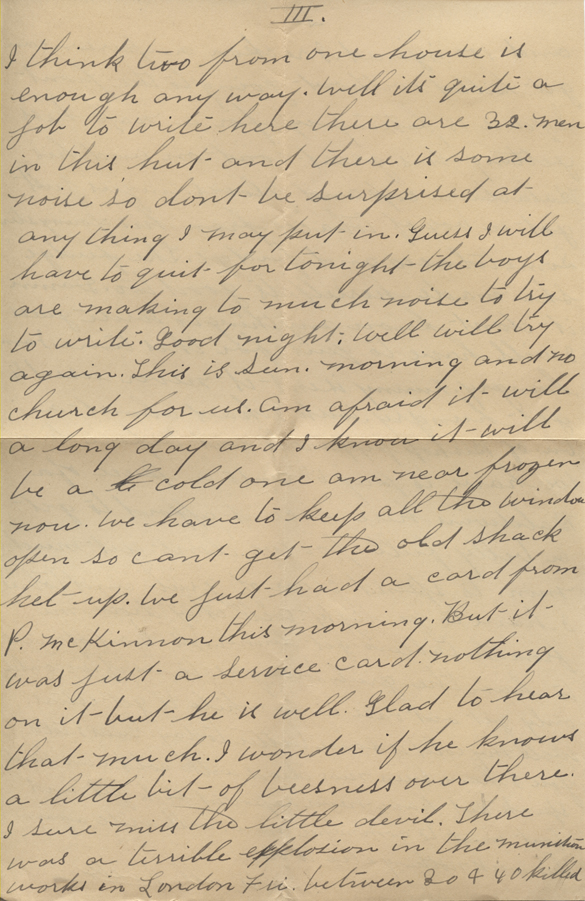 III.
I think two from one house is
enough any way. Well its quite a
job to write here there are 32. men
in this hut and there is some
noise so dont be surprised at
any thing I may put in. Guess I will
have to quit for tonight the boys
are making to much noise to try
to write. Good night. Well will try
again. This is Sun. morning and no
church for us. am afraid it will
a long day and I know it will
be a cold one am near frozen
now. we have to keep all the window
open so cant get the old shack
het up. We just had a card from
P. McKinnon this morning. But it
was just a service card nothing
on it but he is well. Glad to hear
that much. I wonder if he knows
a little bit of beesness over there.
I sure miss the little devil. There
was a terrible explosion in the munition
works in London Fri. between 30 & 40 killed